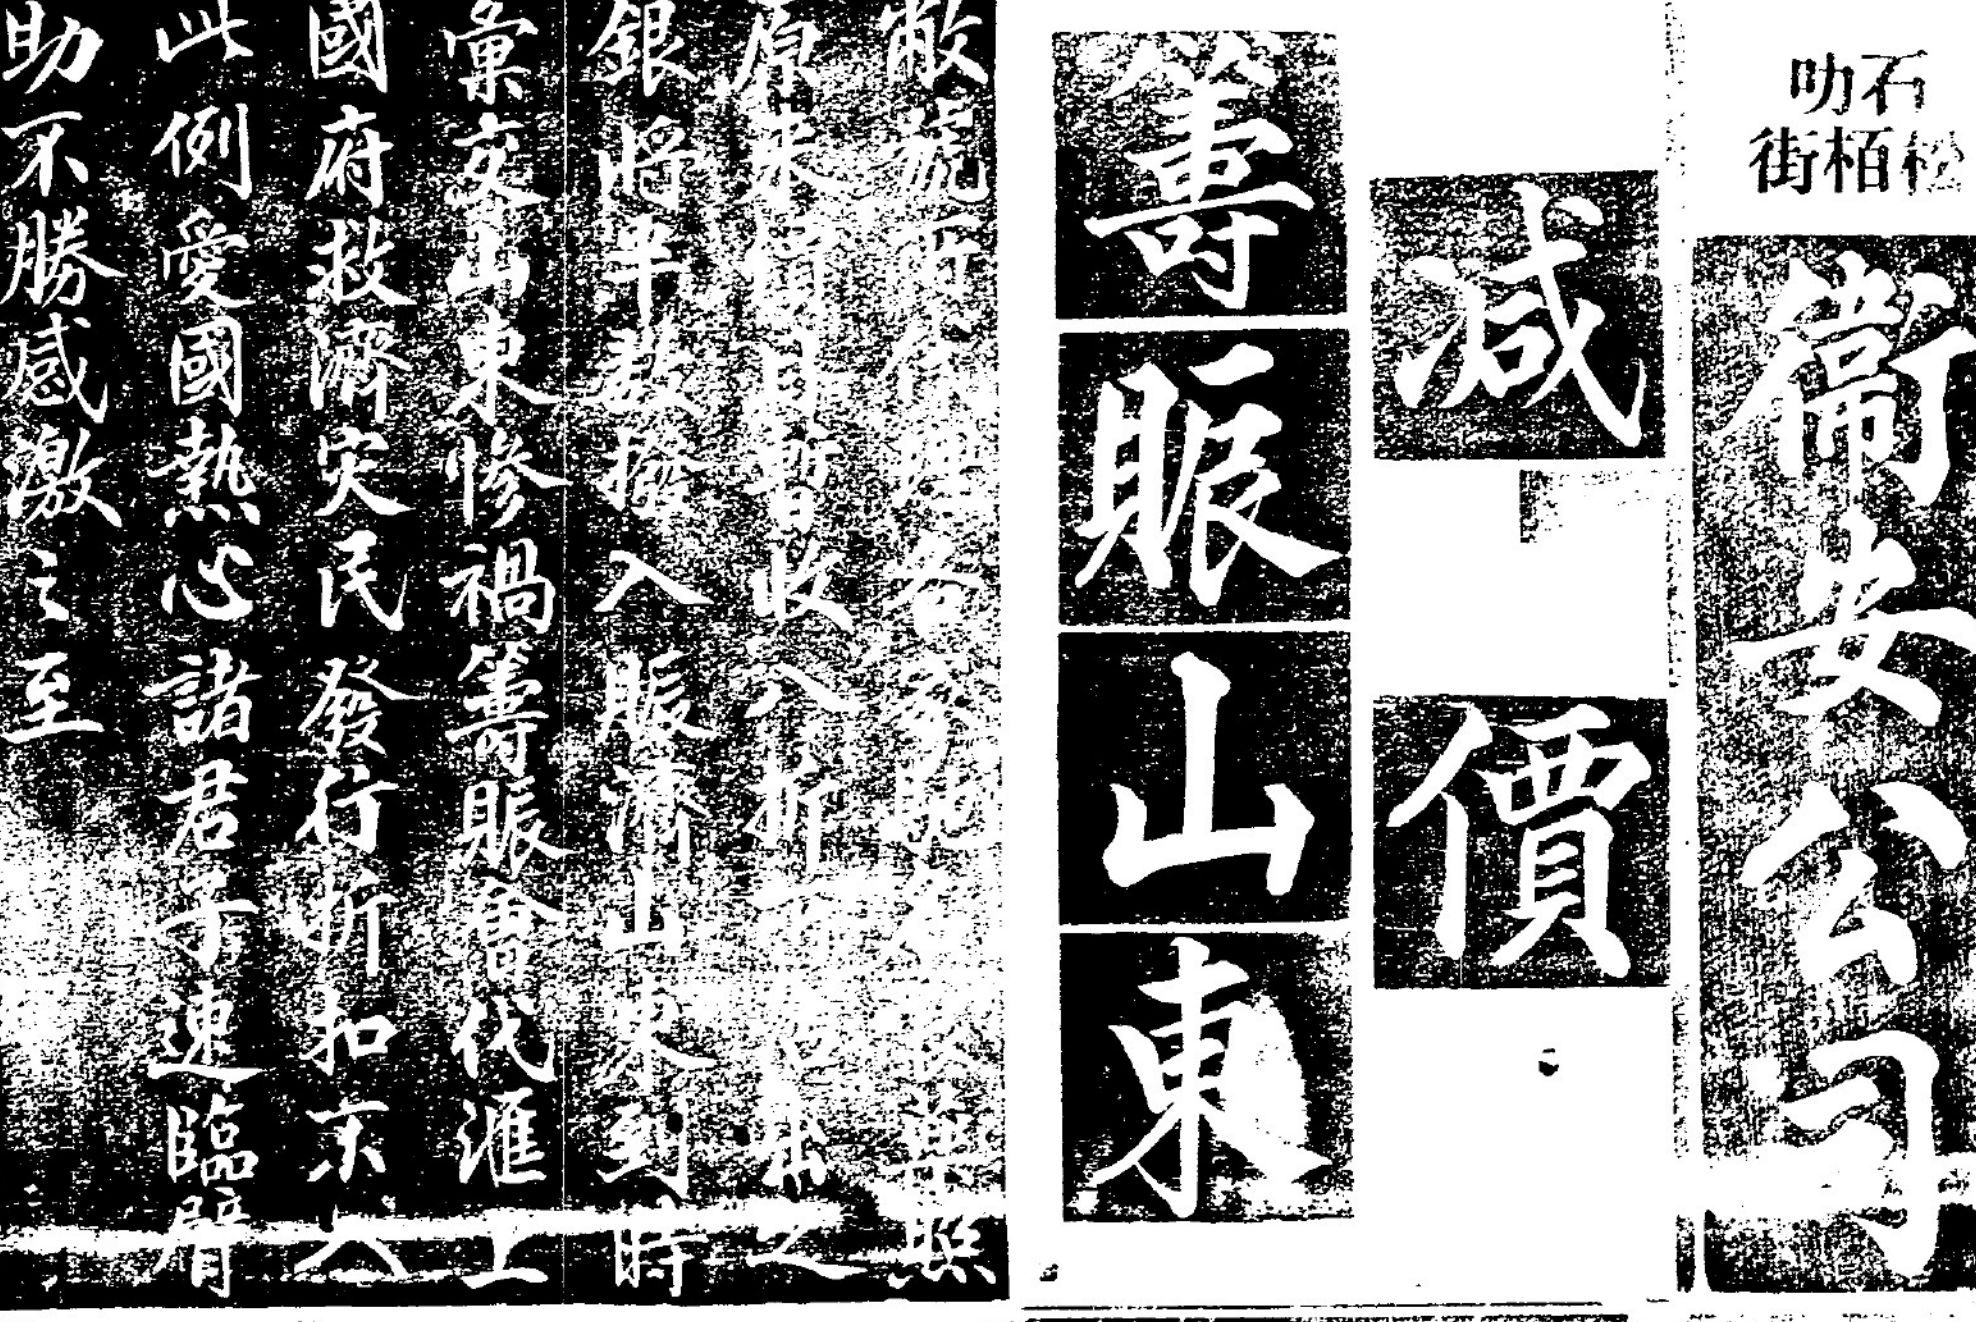 石叻
松栢街
衞安公司
减價
籌賑山東
敝號所代理各
原來價目暫收八折
銀將半数撥入賑濟山東到時
彙交山東慘禍籌賑會代滙上
國府救濟灾民發行折扣亦入
此例愛國熱心諸君子速臨臂
助不勝感激之至